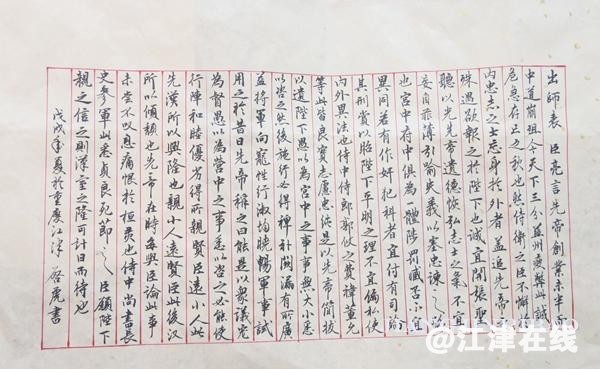 出師表 臣亮言先帝創業未半而
中道崩殂今天下三分益州疲弊此誠
危急存亡之秋也然侍衛之臣不懈於
内忠志之士忘身於外者蓋追先帝之
殊遇欲報之於陛下也誠宜開張聖
聽以光先帝遺德恢弘志士之氣不宜
妄自菲薄引喻失義以塞忠諫之路
也宮中府中俱為一體陟罰臧否不宜
異同若有作奸犯科者宜付有司論
其刑賞以昭陛下平明之理不宜偏私使
内外異法也侍中侍郎郭攸之費禕董允
等此皆良實志慮忠純是以先帝簡拔
以遺陛下愚以為宮中之事事無大小悉
以咨之然後施行必得裨補闕漏有所廣
益將軍向寵性行淑均曉暢軍事試
用之於昔日先帝稱之曰能是以衆議寵
為督愚以為營中之事悉以咨之必能使
行陣和睦優劣得所親賢臣遠小人此
先漢所以興隆也親小人遠賢臣此後漢
所以傾頹也先帝在時每與臣論此事
未嘗不以息痛恨於桓靈也侍中尚書長
史參軍此悉貞良死節之臣願陛下
親之信之則漢室之隆可計日而待也
戊戌年夏於重慶江津 虎書
@江津在线